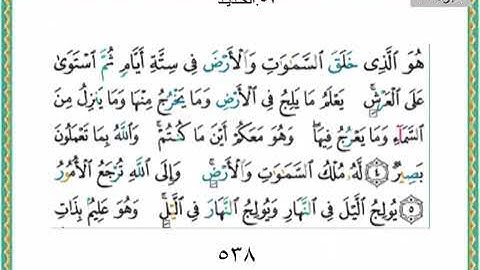 ٥٧.الحديد
هُوَ الَّذِى خَلَقَ السَّمَٰوَٰتِ وَالْأَرْضَ فِى سِتَّةِ أَيَّامٍ ثُمَّ اسْتَوَىٰ
عَلَى الْعَرْشِ ۚ يَعْلَمُ مَا يَلِجُ فِى الْأَرْضِ وَمَا يَخْرُجُ مِنْهَا وَمَا يَنزِلُ مِنَ
السَّمَآءِ وَمَا يَعْرُجُ فِيهَا ۖ وَهُوَ مَعَكُمْ أَيْنَ مَا كُنتُمْ ۚ وَاللَّهُ بِمَا تَعْمَلُونَ
بَصِيرٌ ٤ لَّهُ مُلْكُ السَّمَٰوَٰتِ وَالْأَرْضِ ۚ وَإِلَى اللَّهِ تُرْجَعُ الْأُمُورُ
٥ يُولِجُ الَّيْلَ فِى النَّهَارِ وَيُولِجُ النَّهَارَ فِى الَّيْلِ ۚ وَهُوَ عَلِيمٌ بِذَاتِ
٥٣٨